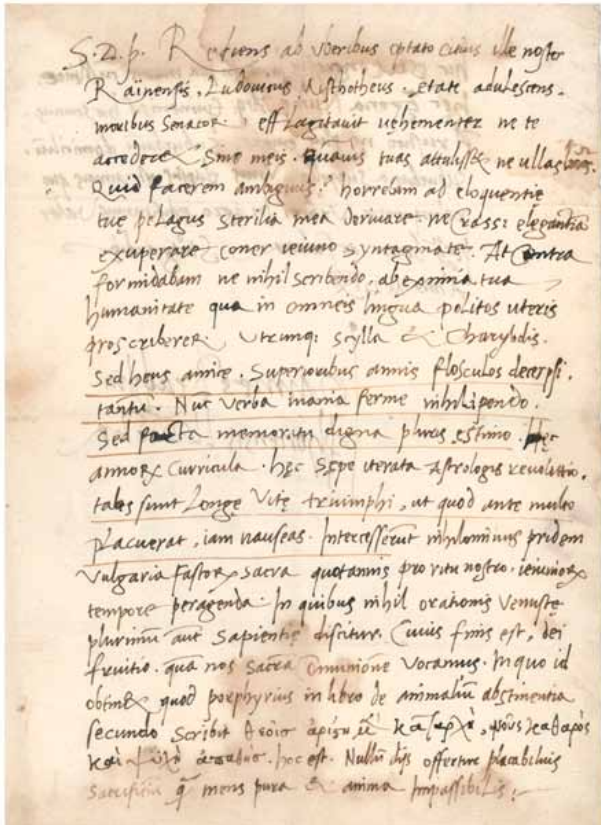 S. D. p. Rediens ab Vberibus optato ciuis ille noster
Rainensis. Ludouicus Aristhotheus. etate adulescens.
moribus Senator. efflagitauit uehementer ne te
accederet Sine meis. quãuis tuas attulisset ne ullas
Quid facerem ambiguus: horrebam ad eloquentie
tue pelagus Sterilia mea deriuare neCrassi elegantiã
exuperare coner ieiuno Syntagmate. At Contra
formidabam ne nihil Scribendo. ab eximia tua
humanitate qua in omneis lingua politos uteris
proscriberer. Vtrimq; Scylla & Charybdis.
Sed heus amice. Superioribus annis flosculos decerpsi
tantũ. Nũc Verba inania ferme nihilipendo.
Sed facta memoratu digna pluris estimo. Hęc
annorꝝ Curricula. hęc Sepe iterata Astrologis reuolutio.
tales sunt Longe Vitę triumphi, ut quod ante multo
placuerat, iam nauseas. Intercesserũt nihilominus pridem
Vulgaria fastorꝝ Sacra quotannis pro ritu nostro. ieiuniorꝝ
tempore peragenda. In quibus nihil orationis Venustę
plurimũ aut Sapientię discitur. Cuius finis est, dei
fruitio. quã nos Sacra Comunione Vocamus. In quo id
obtinet quod porphyrius in libro de animaliũ abstinentia
secundo Scribit θεοῖς ἀρίστη μὲ καταρχὴ, νοῦς καθαρὸς
καὶ ψυχὴ ἀπαθὴς. hoc est. Nullũ dijs offertur placabilius
Sacrificiũ q̃ mens pura & anima Impassibilis: